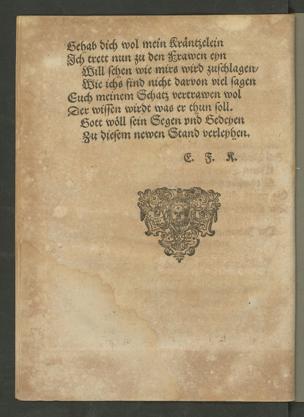 Gehab dich wol mein Kräntzelein
Ich trett nun zu den Frawen eyn
Will sehen wie mirs wird zuschlagen/
Wie ichs find nicht darvon viel sagen
Euch meinem Schatz vertrawen wol
Der wissen wirdt was er thun soll.
Gott wöll sein Segen vnd Gedeyen
Zu diesem newen Stand verleyhen.
E. F. K.